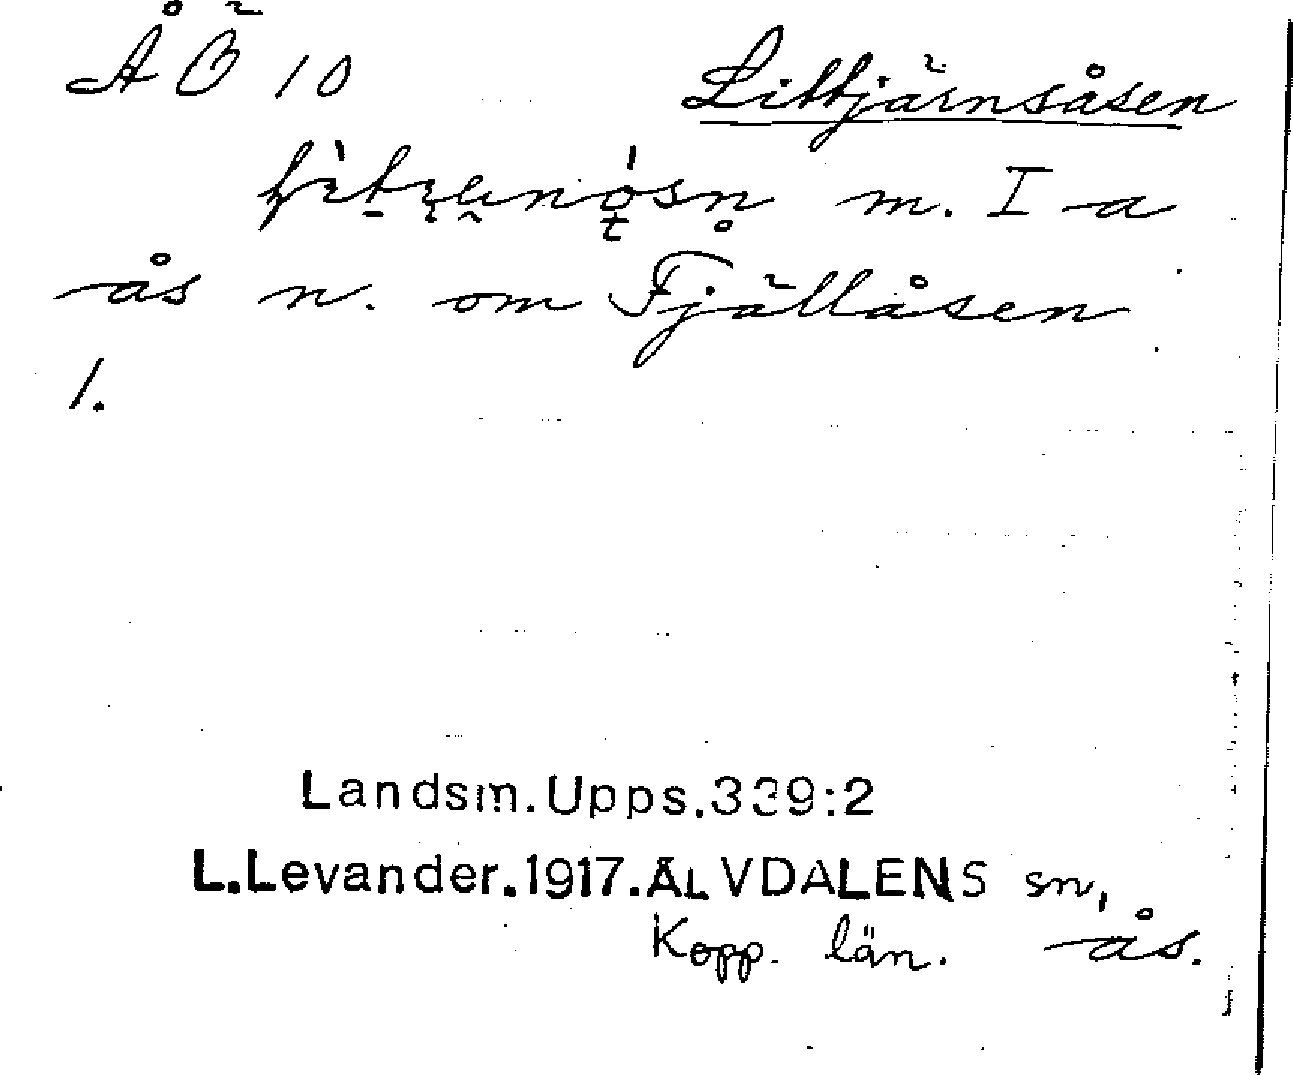 ÅÖ 10 Littjärnsåsen
m. I a
ås n. om Fjällåsen
1.
Landsm.Upps.339:2
L.Levander.1917.ÄLVDALENS sn,
Kopp. län. ås.